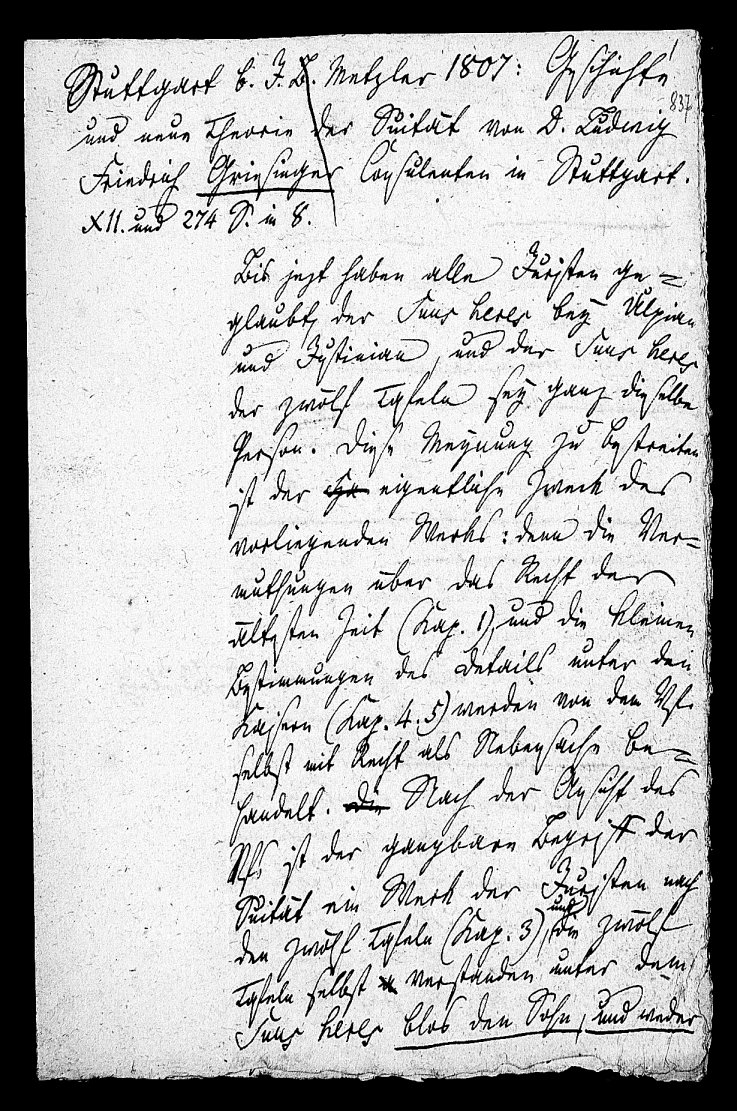 1
837
Stuttgart b. J. B. Metzler 1807: Geschichte
und neue Theorie der Suität von D. Ludwig
Friedrich Griesinger Consulenten in Stuttgart.
XII. und 274 S. in 8.
Bis jezt haben alle Juristen ge=
glaubt, der Suus heres bey Ulpian
und Justinian, und der Suus heres
der zwölf Tafeln sey ganz dieselbe
Person. Diese Meynung zu bestreiten
ist der eigentliche Zweck des
vorliegenden Werks: denn die Ver=
muthungen über das Recht der
ältesten Zeit (Kap. 1), und die kleinen
Bestimmungen des Details unter den
Kaisern (Kap. 4. 5) werden von dem Vf.
selbst mit Recht als Nebensache be=
handelt. Die Nach der Ansicht des
Vfs ist der gangbare Begriff der
Suität ein Werk der Juristen nach
den zwölf Tafeln (Kap. 3), und die zwölf
Tafeln selbst verstanden unter dem
Suus heres blos den Sohn, und weder